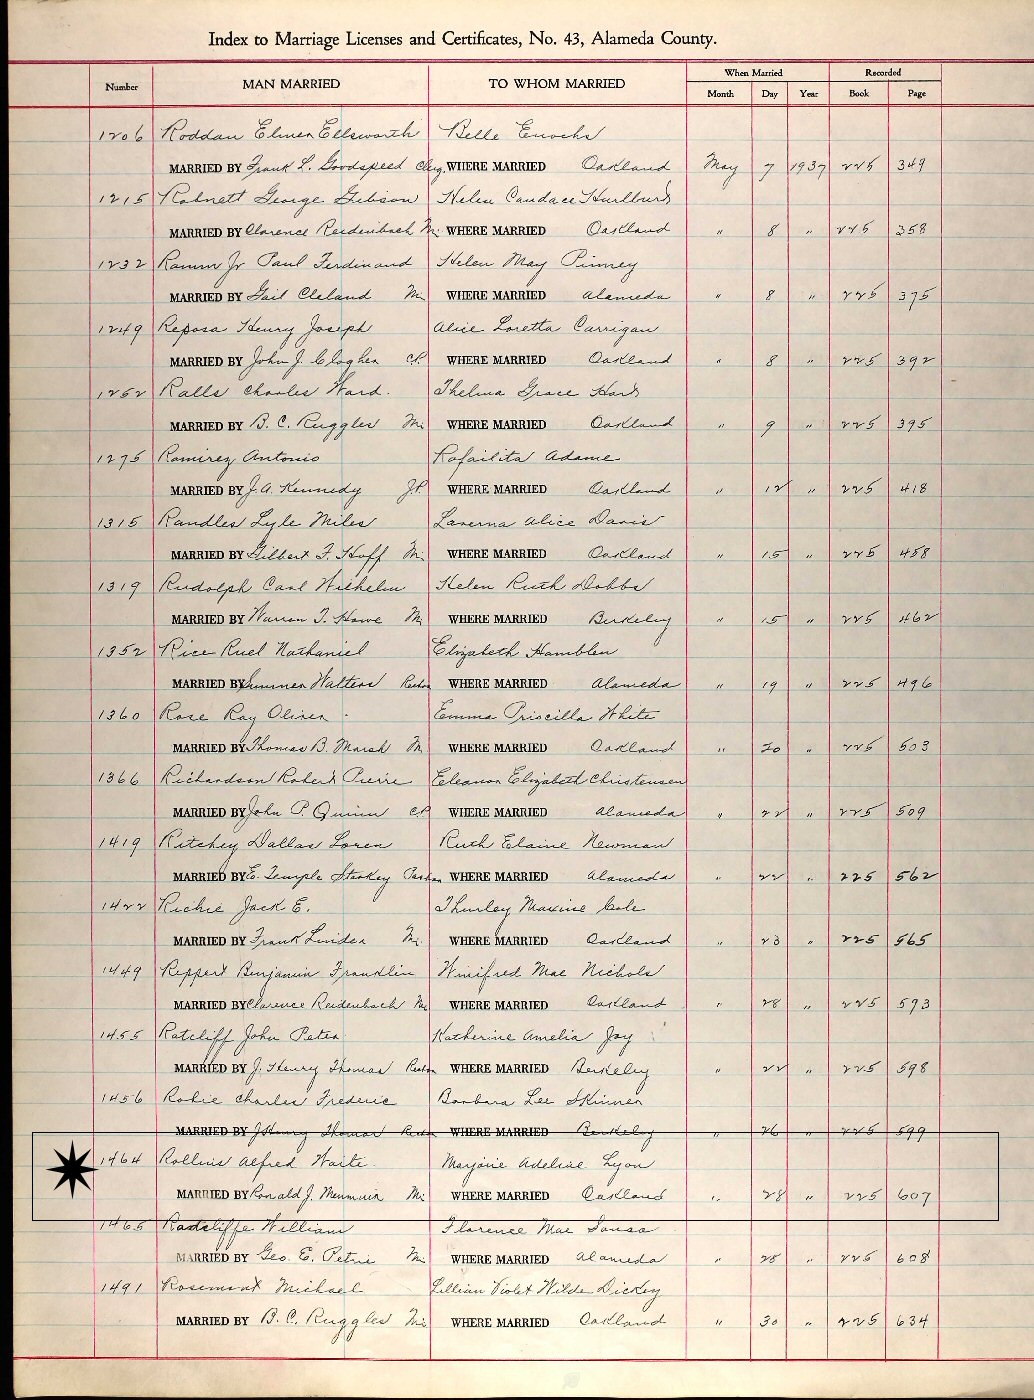 Index to Marriage Licenses and Certificates, No. 43, Alameda County.
Number MAN MARRIED TO WHOM MARRIED When Married Recorded
Month Day Year Book Page
1206 Roddan Elmer Ellsworth Belle Enochs
MARRIED BY Frank L. Goodspeed Clerg. WHERE MARRIED Oakland May 7 1937 225 349
1215 Robnett George Gibson Helen Candace Hurlburt
MARRIED BY Clarence Reidenbach Mi. WHERE MARRIED Oakland " 8 " 225 358
1232 Ramm Jr Paul Ferdinand Helen May Pinney
MARRIED BY Gail Cleland Mi. WHERE MARRIED Alameda " 8 " 225 375
1249 Reposa Henry Joseph Alice Loretta Carrigan
MARRIED BY John J. Clogher CP. WHERE MARRIED Oakland " 8 " 225 392
1252 Ralls Charles Ward. Thelma Grace
MARRIED BY B. C. Ruggles Mi. WHERE MARRIED Oakland " 9 " 225 395
1275 Ramirez Antonio Rafailita Adame
MARRIED BY J. A. Kennedy J.P. WHERE MARRIED Oakland " 12 " 225 418
1315 Randles Lyle Miles Laverna Alice Davis
MARRIED BY Gilbert F. Hoff Mi. WHERE MARRIED Oakland " 15 " 225 458
1319 Rudolph Carl Wilhelm Helen Ruth Dobbs
MARRIED BY Warren T. Howe Mi. WHERE MARRIED Berkeley " 15 " 225 462
1352 Rice Ruel Nathaniel Elizabeth Hamblen
MARRIED BY Sumner Walters Rector WHERE MARRIED Alameda " 19 " 225 496
1360 Rose Ray Oliver Emma Priscilla White
MARRIED BY Thomas B. Marsh M. WHERE MARRIED Oakland " 20 " 225 503
1366 Richardson Robert Pierre Eleanor Elizabeth Christensen
MARRIED BY John P. Quinn CP. WHERE MARRIED Alameda " 22 " 225 509
1419 Ritchey Dallas Loren Ruth Elaine Newman
MARRIED BY E. Temple Starkey Pastor WHERE MARRIED Alameda " 22 " 225 562
1422 Richie Jack E. Thurley Maxine Cole
MARRIED BY Frank Linder Mi. WHERE MARRIED Oakland " 23 " 225 565
1449 Reppert Benjamin Franklin Winifred Mae Nichols
MARRIED BY Clarence Reidenbach Mi. WHERE MARRIED Oakland " 28 " 225 593
1455 Ratcliff John Peter Katherine Amelia Jay
MARRIED BY J. Henry Thomas Rector WHERE MARRIED Berkeley " 22 " 225 598
1456 Robie Charles Frederic Barbara Lee Skinner
MARRIED BY J Henry Thomas Rector WHERE MARRIED Berkeley " 26 " 225 599
1464 Rollins Alfred Waite. Marjorie Adeline Lyon
MARRIED BY Ronald J. Mi. WHERE MARRIED Oakland " 28 " 225 607
1465 Radcliffe William Florence Mae Sousa
MARRIED BY Geo. E. Petrie Mi. WHERE MARRIED Alameda " 28 " 225 608
1491 Rosemont Michael Lillian Violet Wilda Dickey
MARRIED BY B. C. Ruggles Mi. WHERE MARRIED Oakland " 30 " 225 634